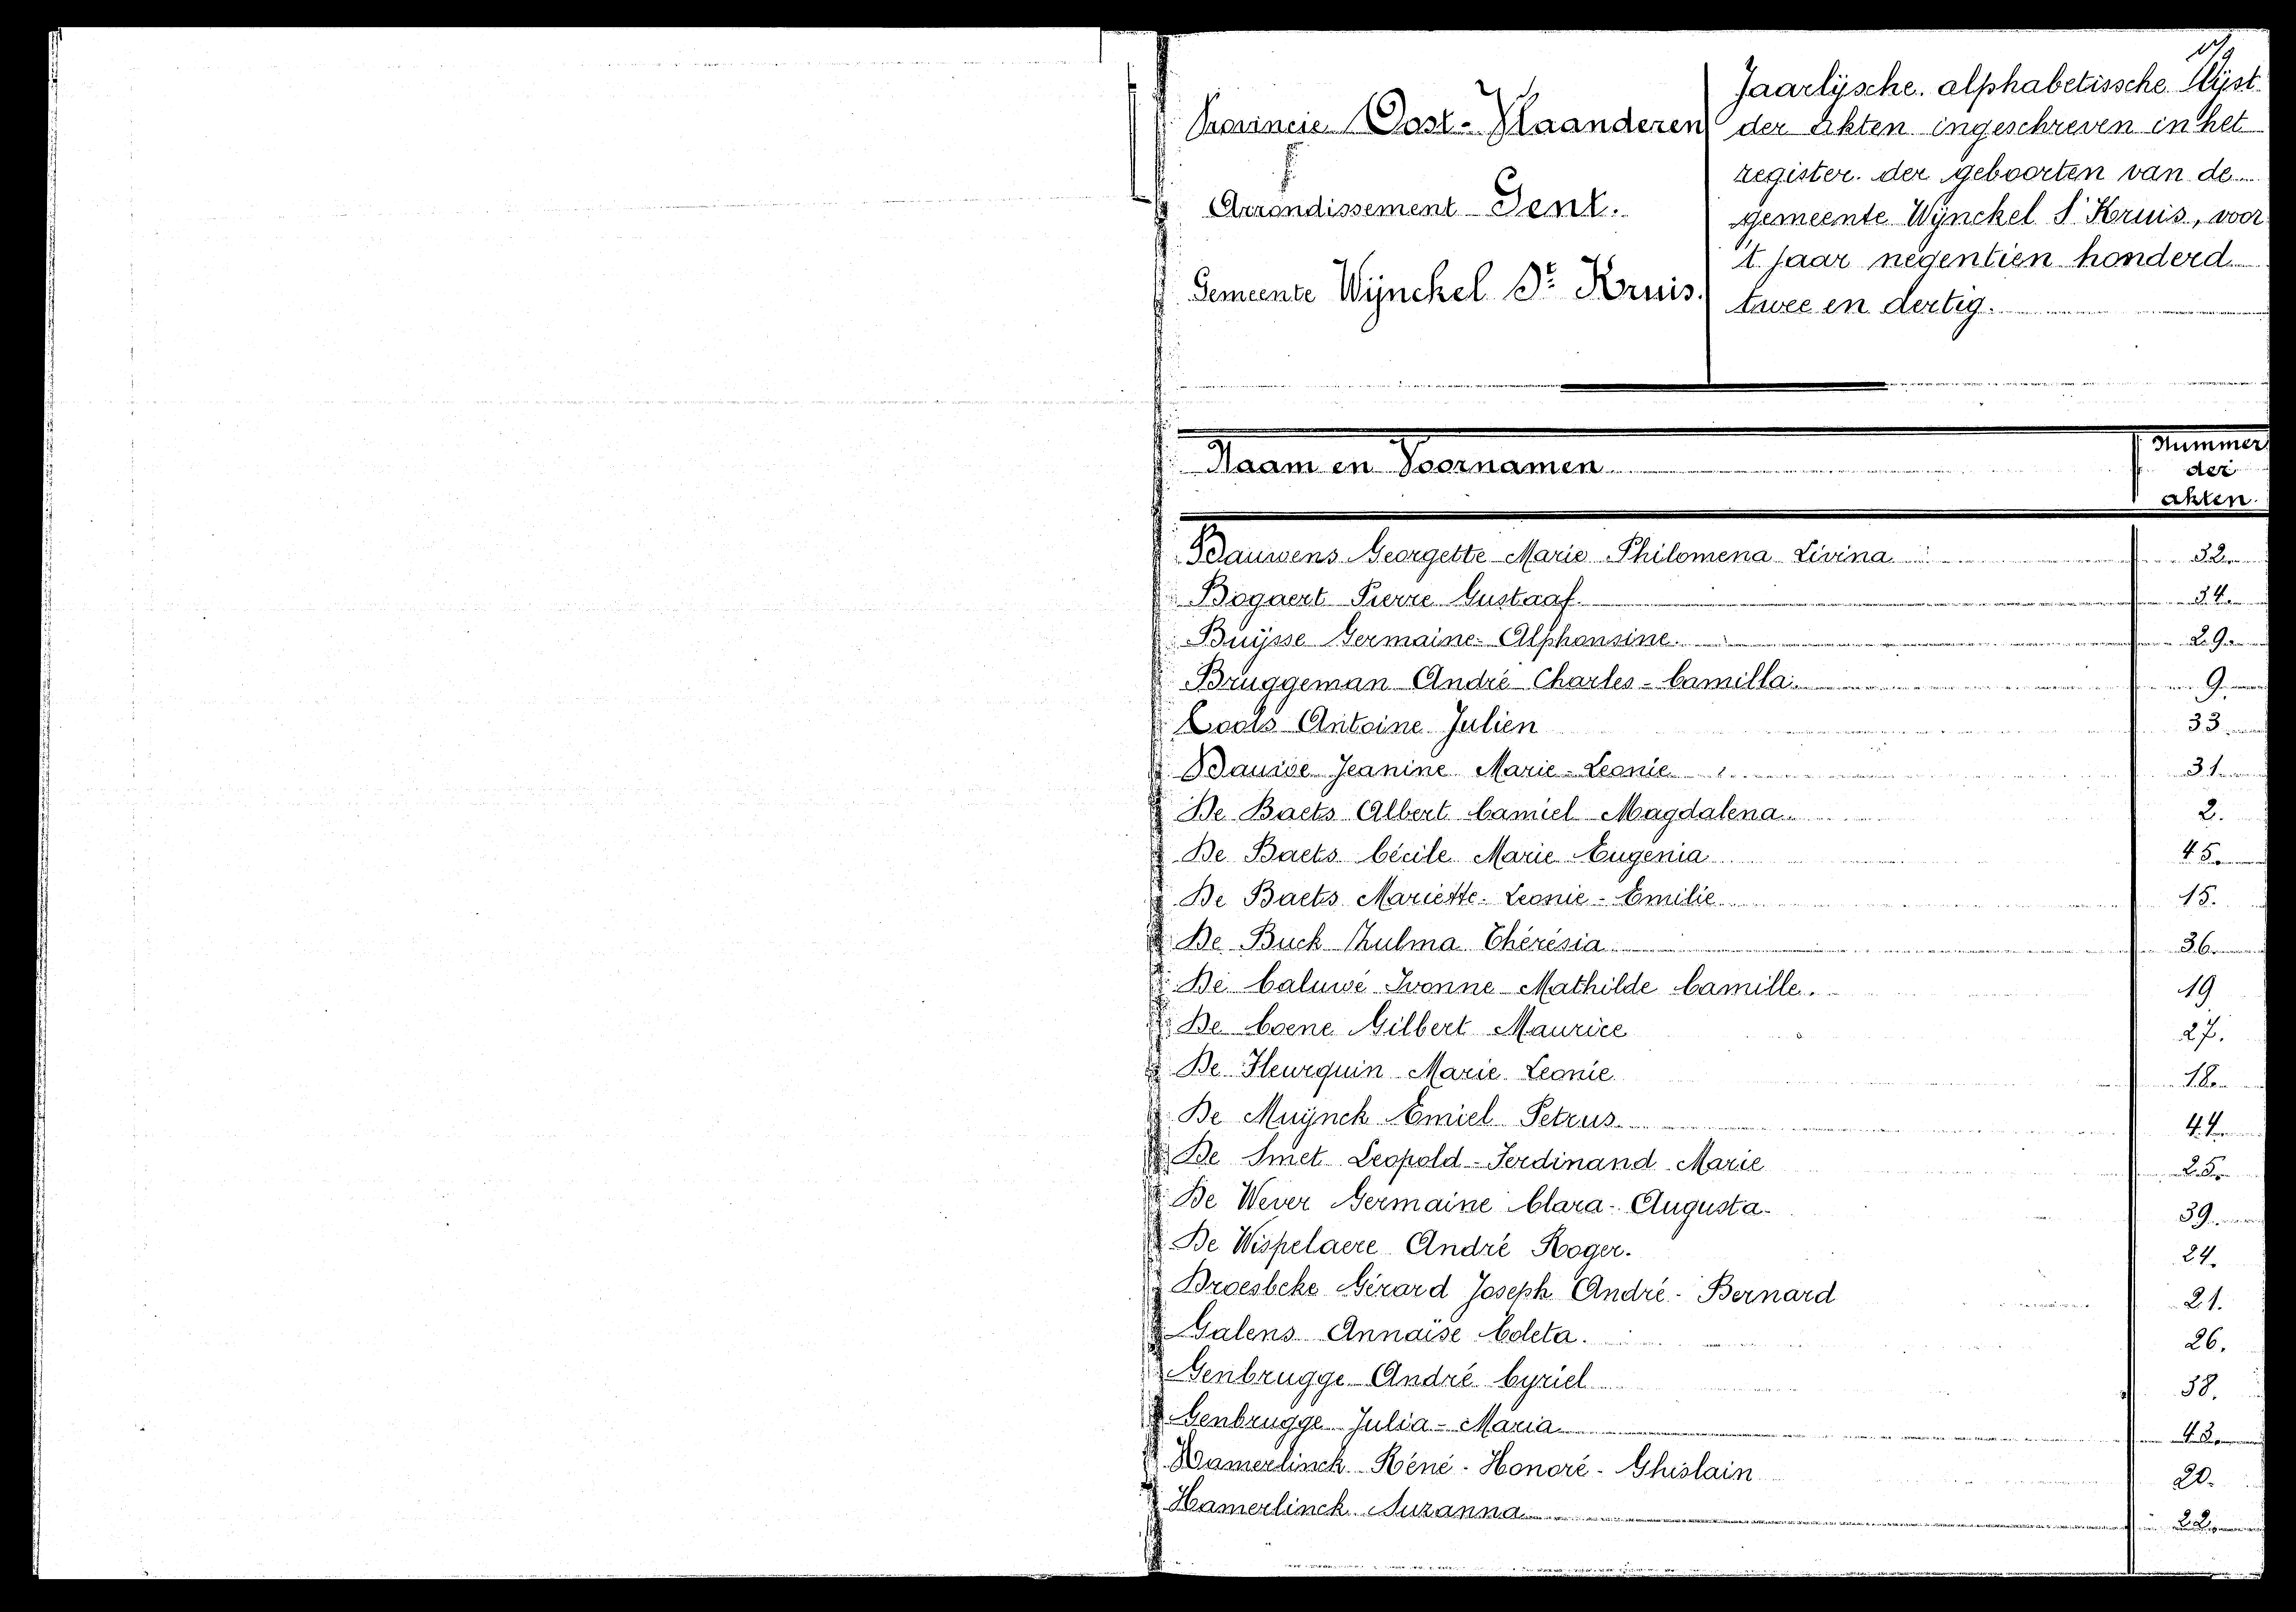 Provincie Oost-Vlaanderen
Arrondissement Gent.
Gemeente Wijnckel St Kruis.
Jaarlijsche alphabetissche Lijst
der akten ingeschreven in het
register der geboorten van de
gemeente Wijnckel St Kruis, voor
't jaar negentien honderd
twee en dertig.
Naam en Voornamen
Nummer
der
akten.
Bauwens Georgette Marie Philomena Livina 32.
Bogaert Pierre Gustaaf. 34.
Buijsse Germaine Alphonsine. 29.
Bruggeman André Charles-Camilla. 9.
Cools Antoine Julien 33.
Dauwe Jeanine Marie-Leonie 31.
De Baets Albert Camiel Magdalena. 2.
De Baets Cécile Marie Eugenia 45.
De Baets Mariette-Leonie-Emilie 15.
De Buck Zulma Thérésia 36.
De Caluwé Ivonne-Mathilde Camille. 19
De Coene Gilbert Maurice 27.
De Fleurquin Marie Leonie 18.
De Muijnck Emiel Petrus 44.
De Smet Leopold-Ferdinand-Marie 25.
De Wever Germaine Clara-Augusta 39.
De Wispelaere André Roger. 24.
Droesbeke Gérard Joseph André-Bernard 21.
Galens Annaïse Coleta. 26.
Genbrugge André Cyriel 38.
Genbrugge Julia-Maria 43.
Hamerlinck Réné-Honoré-Ghislain 20.
Hamerlinck Suzanna 22.